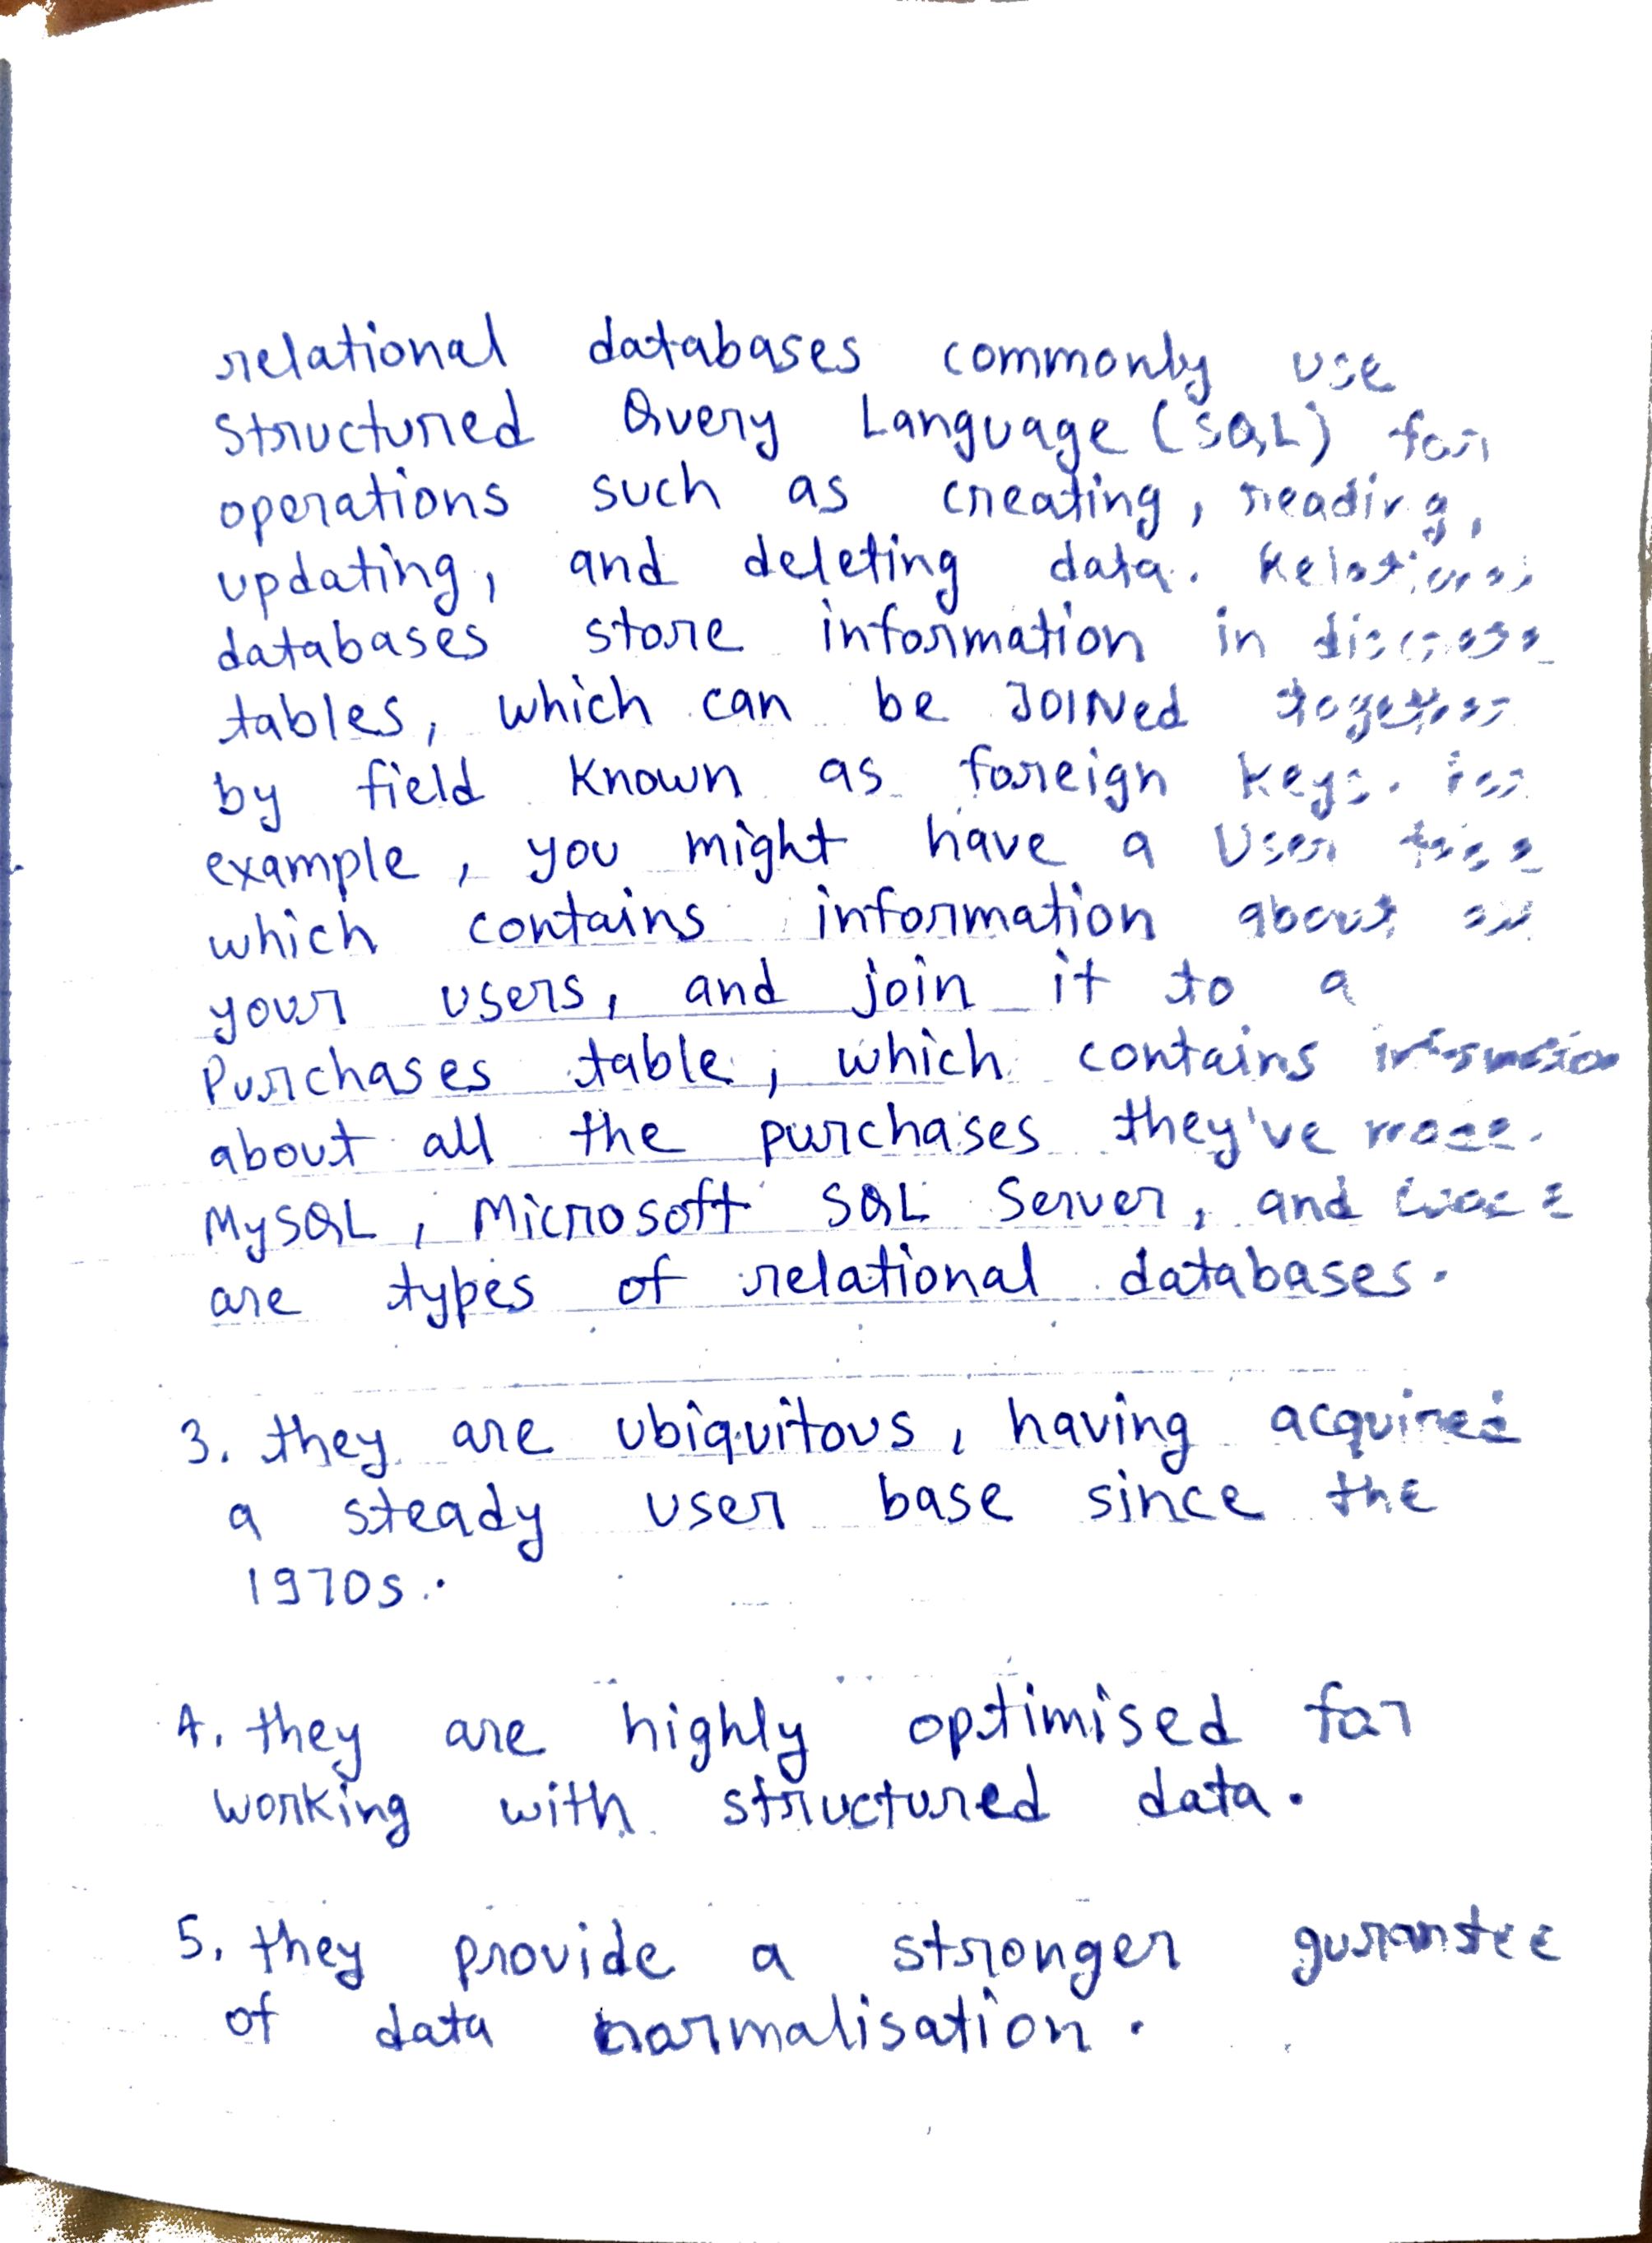 relational databases commonly use
Structured Query Language (SQL) for
operations such as creating, reading,
updating, and deleting data. Relational
databases store information in
tables, which can be JOINed together
by field known as foreign keys. For
example, you might have a User table
which contains information about all
your users, and join it to a
Purchases table, which contains information
about all the purchases they've made.
MySQL, Microsoft SQL Server, and
are types of relational databases.
3. they are ubiquitous, having acquired
a steady user base since the
1970s.
4. they are highly optimised for
working with structured data.
5. they provide a stronger gurantee
of data normalisation.